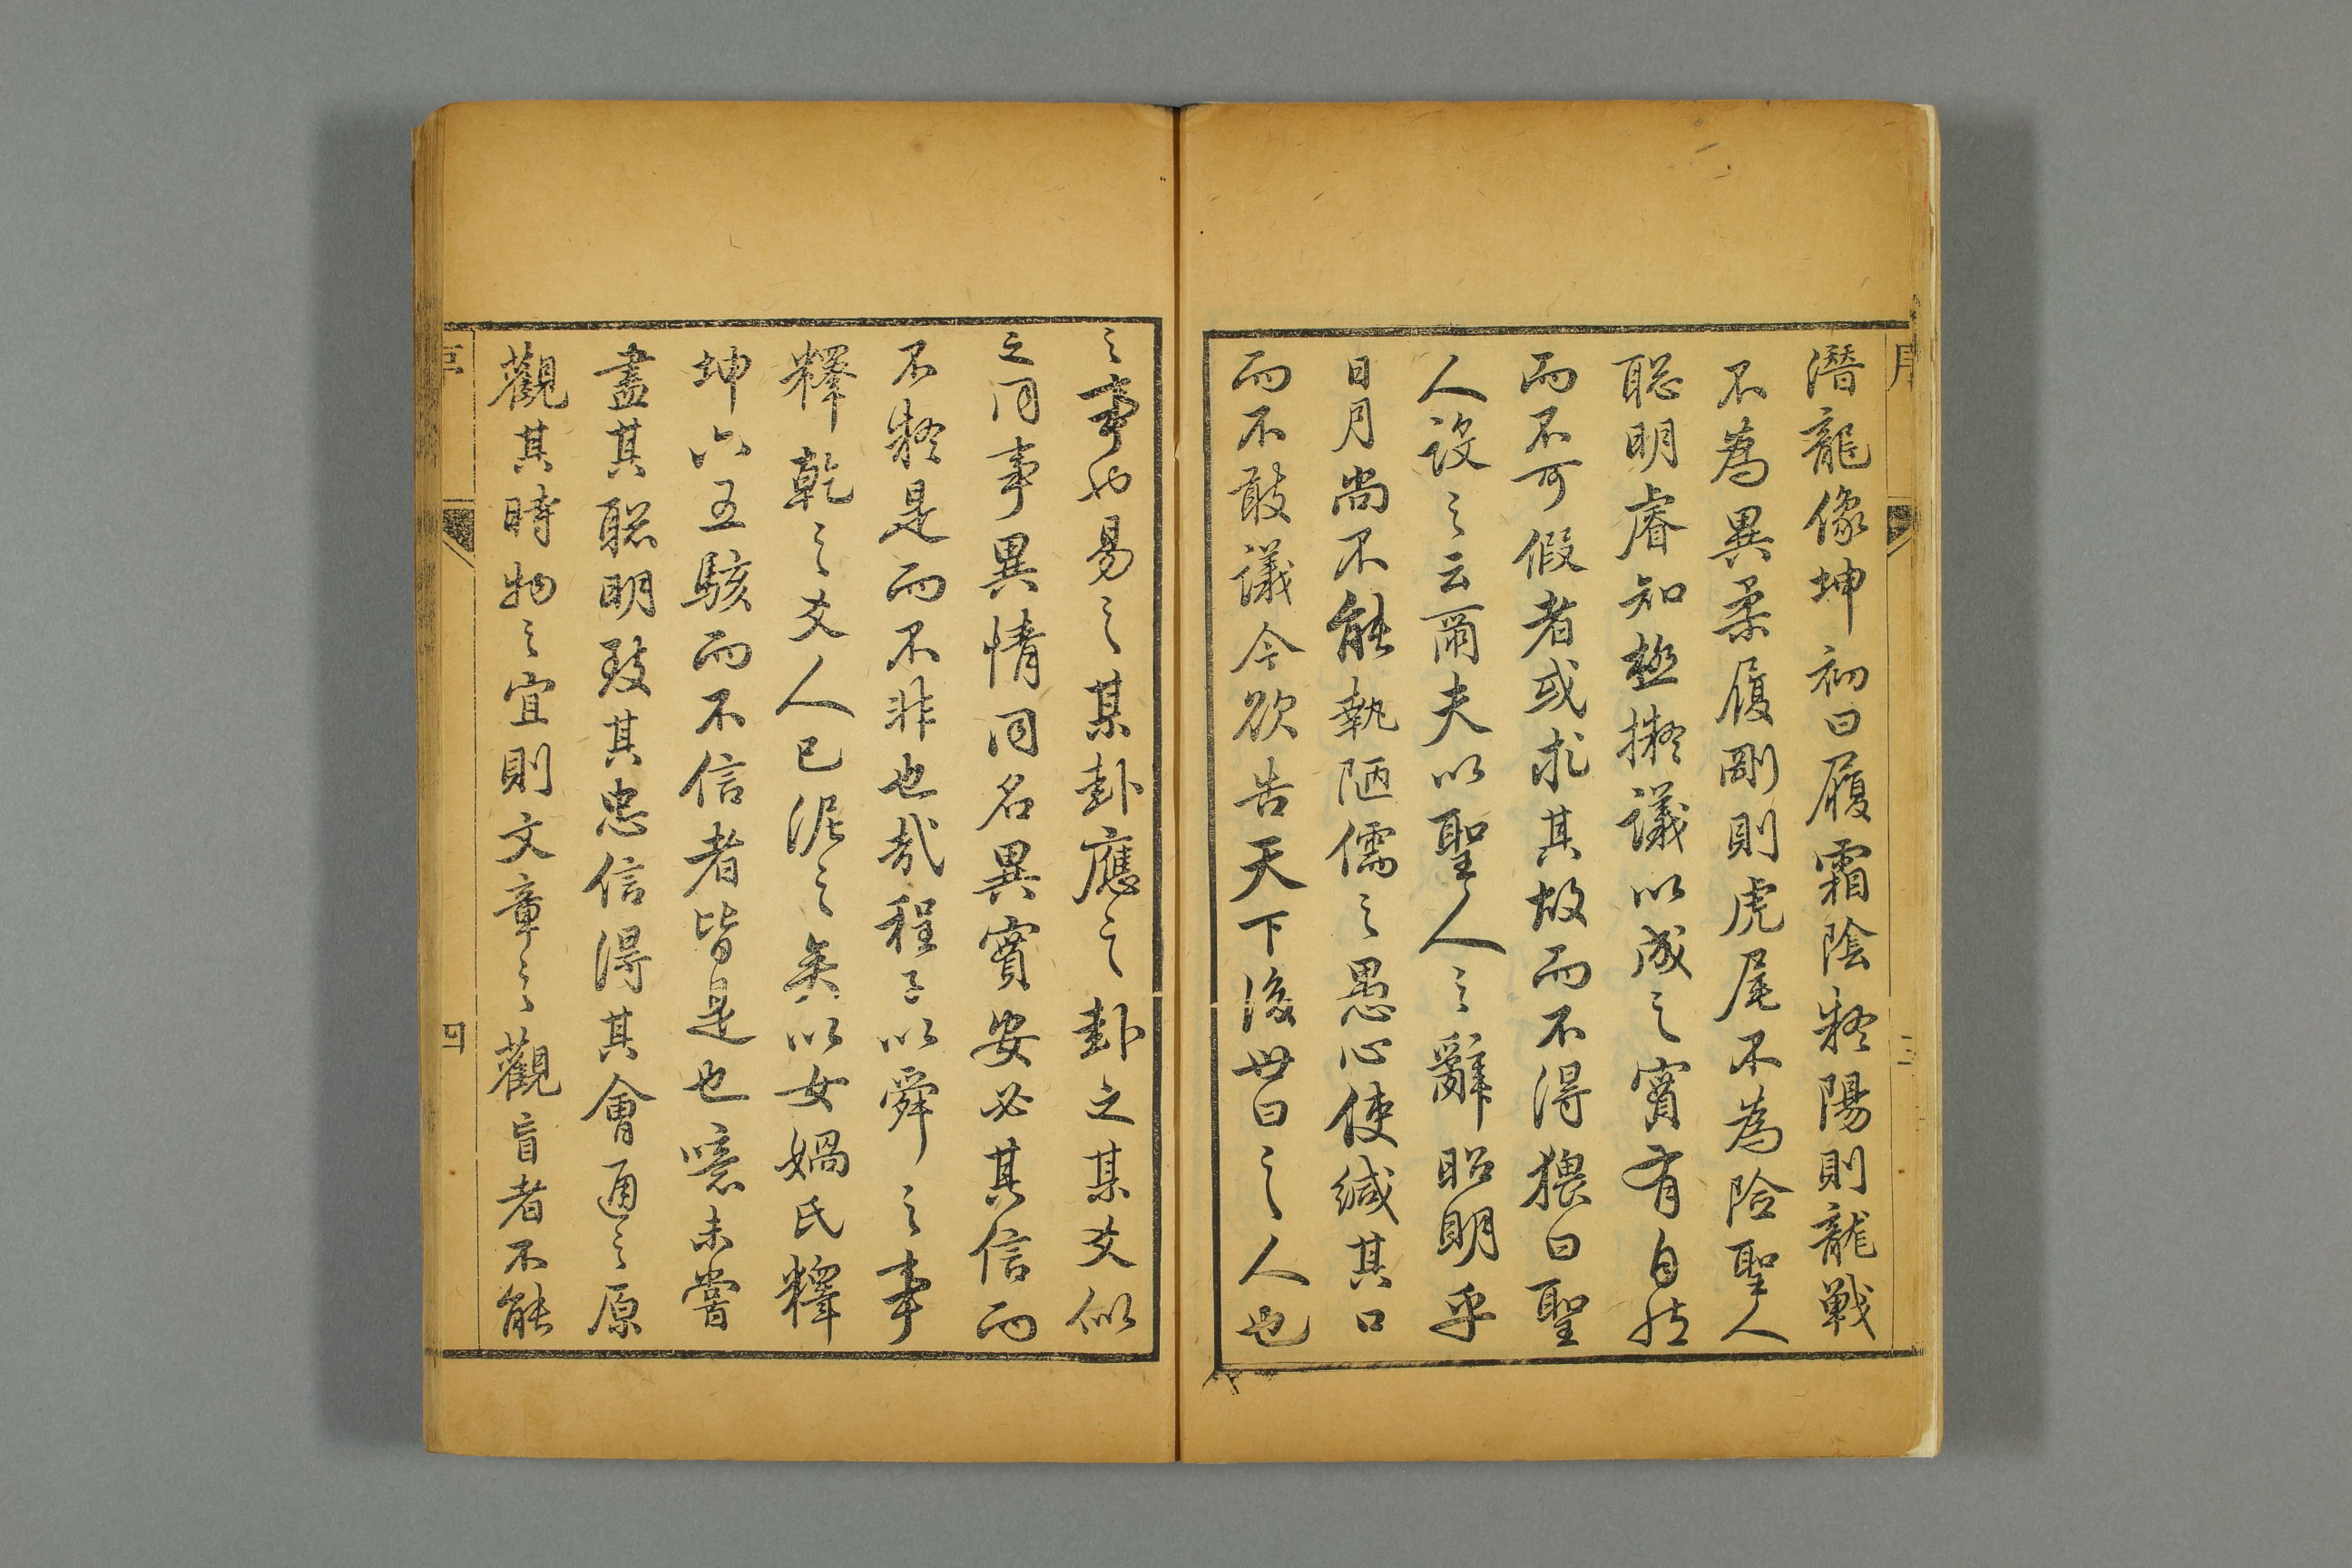 潛龍像坤初曰履霜陰凝陽則龍戰
不為異柔履剛則虎尾不為險聖人
聡明睿知極擬議以成之實有自然
而不可假者或求其故而不得猥曰聖
人設之云爾夫以聖人之辭昭明乎
日月尚不能執陋儒之愚心使緘其口
而不敢議今欲告天下後世曰之人也
之事也易之某卦應之卦之某爻似
之同事異情同名異實安必其信而
不疑是而不非也哉程子以舜之事
釋乾之爻人已泥之矣以女媧氏釋
坤六五駭而不信者皆是也噫未嘗
盡其聡明致其忠信得其會通之原
觀其時物之宜則文章之觀盲者不能
序
四